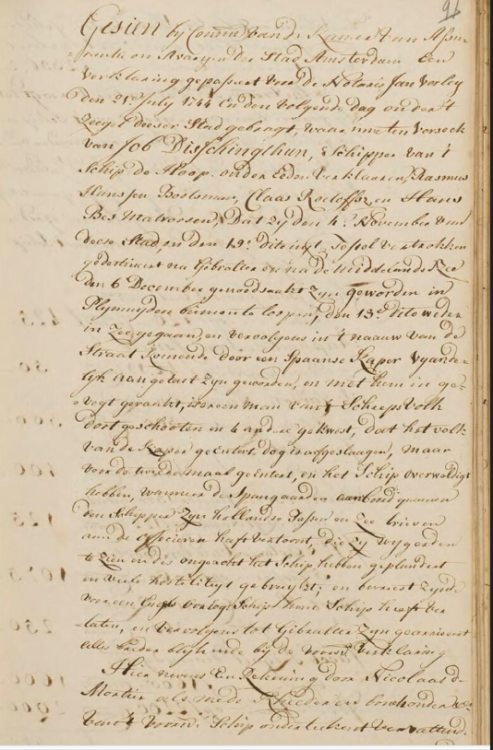 91
Gesien bij Comm. van de Kamer van Assu
rantie en Avarij der Stad Amsterdam Een
verklaring gepasseert voor de Notaris Jan Verley
den 21e July 1744 en den volgende dag onder 't
Zeegel deeser Stad gebragt, waar mee ten versoek
van Job Disschinghun, Schipper van 't
Schip de Hoop, onder Eeden verklaaren, Rasmus
Hanssen Bootsman, Claas Roeloffz en Hans
Bes Matroosen, Dat zij den 4e November van
deese Stad en den 19e dito uijt Texel vertrokken
gedestineert na Gibralter en na de Middelandse Zee
den 6 December genoodsaakt zijn geworden in
Pleymuijden binnen te loopen, den 13e dito weder
in Zee gegaan, en vervolgens in 't naauw van de
Straat komende door een Spaanse Kaper vyande
lijk aangetast zijn geworden, en met hem in ge
vegt geraakt, is een man van 't Scheepsvolk
dootgeschooten en 4 andere gekwest, dat het volk
van de Kaper geentert, dog is afgeslaagen, maar
voor de tweedemaal geentert, en het Schip overweldigt
hebben, wanneer de Spangaarden aan boord quamen
den Schipper zijn hollandse Passen en Zee brieven
aan de officieren heeft vertoont, die zij wijgerden
te zien en des ongeacht het Schip hebben geplundert
en veele hostiliteyt gebruykt; en bevreest zijnde
voor een Engls oorlog Schip haar Schip heeft ver
laten, en vervolgens tot Gibralter zijn gearriveert
alles breeder blijkende bij de voorn. verklaring
Hier nevens Een Rekening door Nicolaas de
Mortier als mede Rheeder en boekhouder
van 't voorn. Schip onderteekent vervattend.